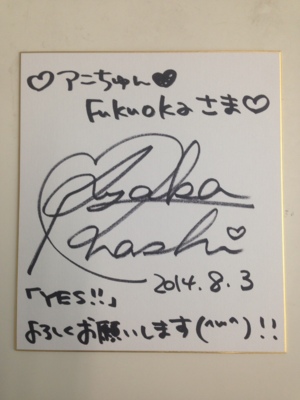 ♡アニちゅん♥
Fukuokaさま♡
Ayaka
Ohashi♡
2014.8.3
「YES!!」
よろしくお願いします(^ω^)!!